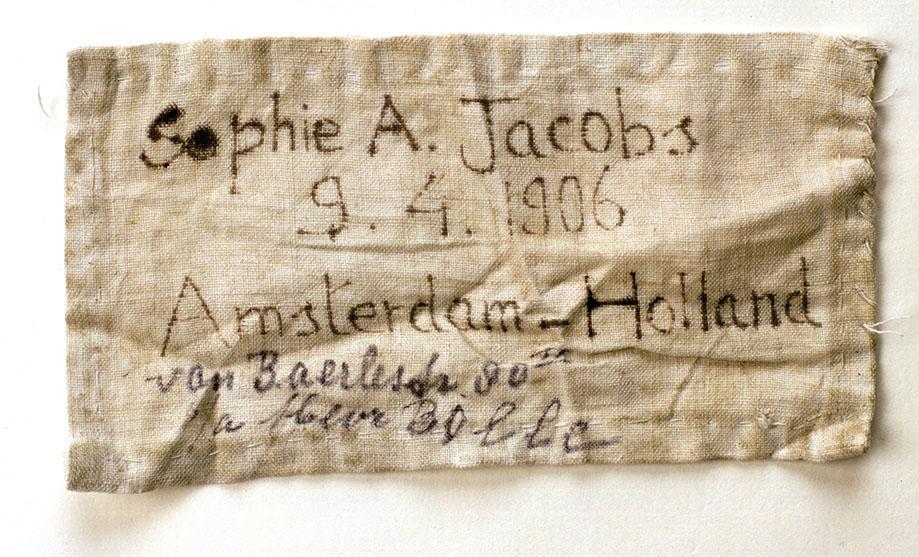 Sophie A. Jacobs
9. 4. 1906
Amsterdam - Holland
van Baerlestr 80
Heer Bille